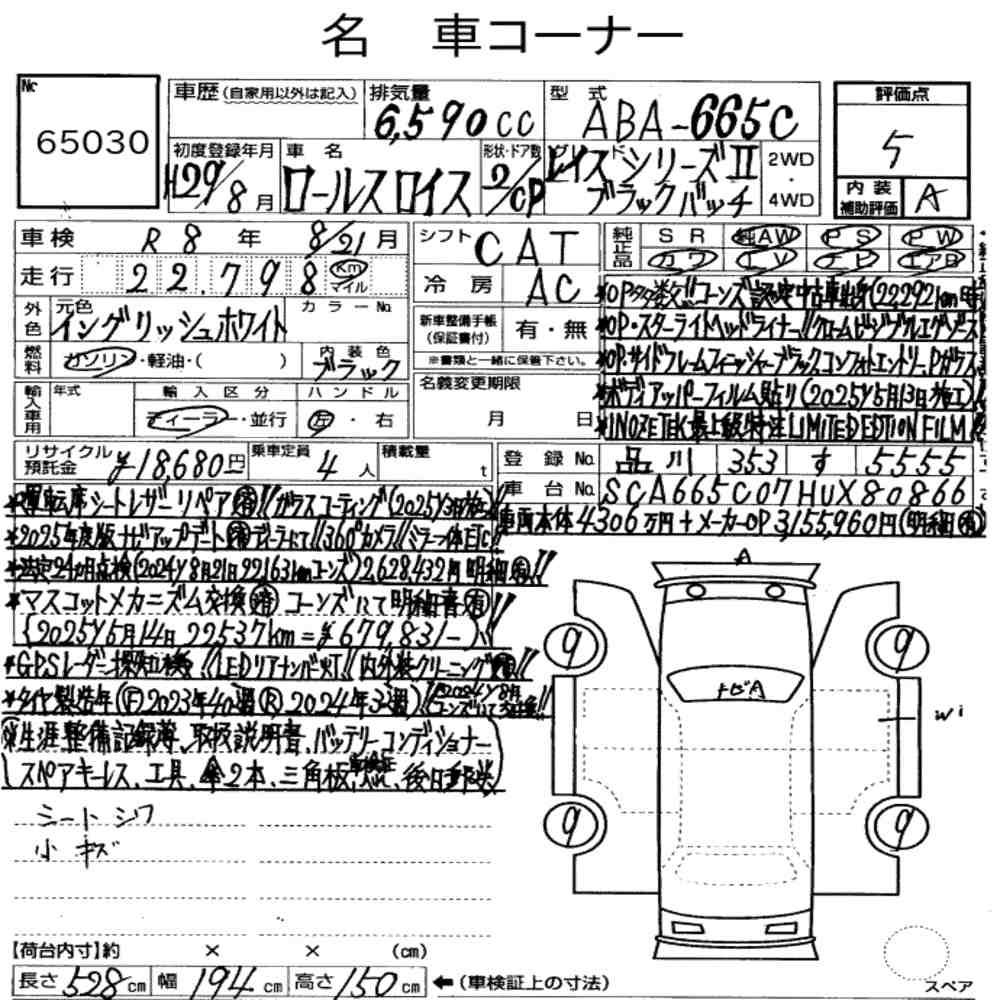 名 車コーナー
No. 65030
車歴 (自家用以外は記入)
排気量 6,590 cc
型式 ABA-665C
評価点 5
初度登録年月 H29/8月
車名 ロールスロイス
形状・ドア数 2/CP
グレード レイスシリーズⅡ
ブラックバッチ
2WD・4WD
内装補助評価 A
車検 R 8年 8/21月
シフト CAT
純正品 SR 純AW PS PW
カワ TV ナビ エアB
走行 22,798 Km マイル
冷房 AC
外色 元色 イングリッシュホワイト
カラーNo.
新車整備手帳(保証書付) 有・無
※書類と一緒に保管下さい。
燃料 ガソリン・軽油・( )
内装色 ブラック
輸入車用 年式
輸入区分 ディーラー・並行
ハンドル 左・右
名義変更期限 月 日
*OP多数!!コーンズ認定中古車出身(22,292km時
*OP・スターライトヘッドライナー!!クロームピンブルエグゾース
*OP・サイドフレームフィニッシャーブラックコンフォートエントリー、Pガラス
*ボディアッパーフィルム貼り(2025y5月13日施工)
*INOZETEK最上級特注LIMITED EDTION FILM
リサイクル預託金 ¥18,680円
乗車定員 4人
積載量 t
登録No. 品川 353 す 5555
車台No. SCA665C07HUX80866
車両本体4306万円+メーカーOP3,155,960円(明細有)
*運転席シートレザーリペア有!!ガラスコーティング(2025y3月施工)
*2025年度版ナビアップデート済ディーラーにて!!360°カメラ!!ミラー一体ETC
*法定24か月点検(2024y8月21日22,163kmコーンズ)2,628,432円 明細有!!
*マスコットメカニズム交換済コーンズにて明細書有!!
(2025y5月14日 22537km=¥679,831-)
*GPSレーダー探知機!!LEDリアナンバー灯!!内外装クリーニング済!!
*タイヤ製造年(F)2023年40週(R)2024年32週)(2024y8月コーンズにて交換!!
※生涯整備記録簿、取扱説明書、バッテリーコンディショナー
スペアキーレス、工具、傘2本、三角板、車検証、後日郵送
シートシワ
小キズ
A
9
9
トビA
Wi
9
9
【荷台内寸】約 × × (cm)
長さ 528 cm 幅 194 cm 高さ 150 cm ←(車検証上の寸法)
スペア